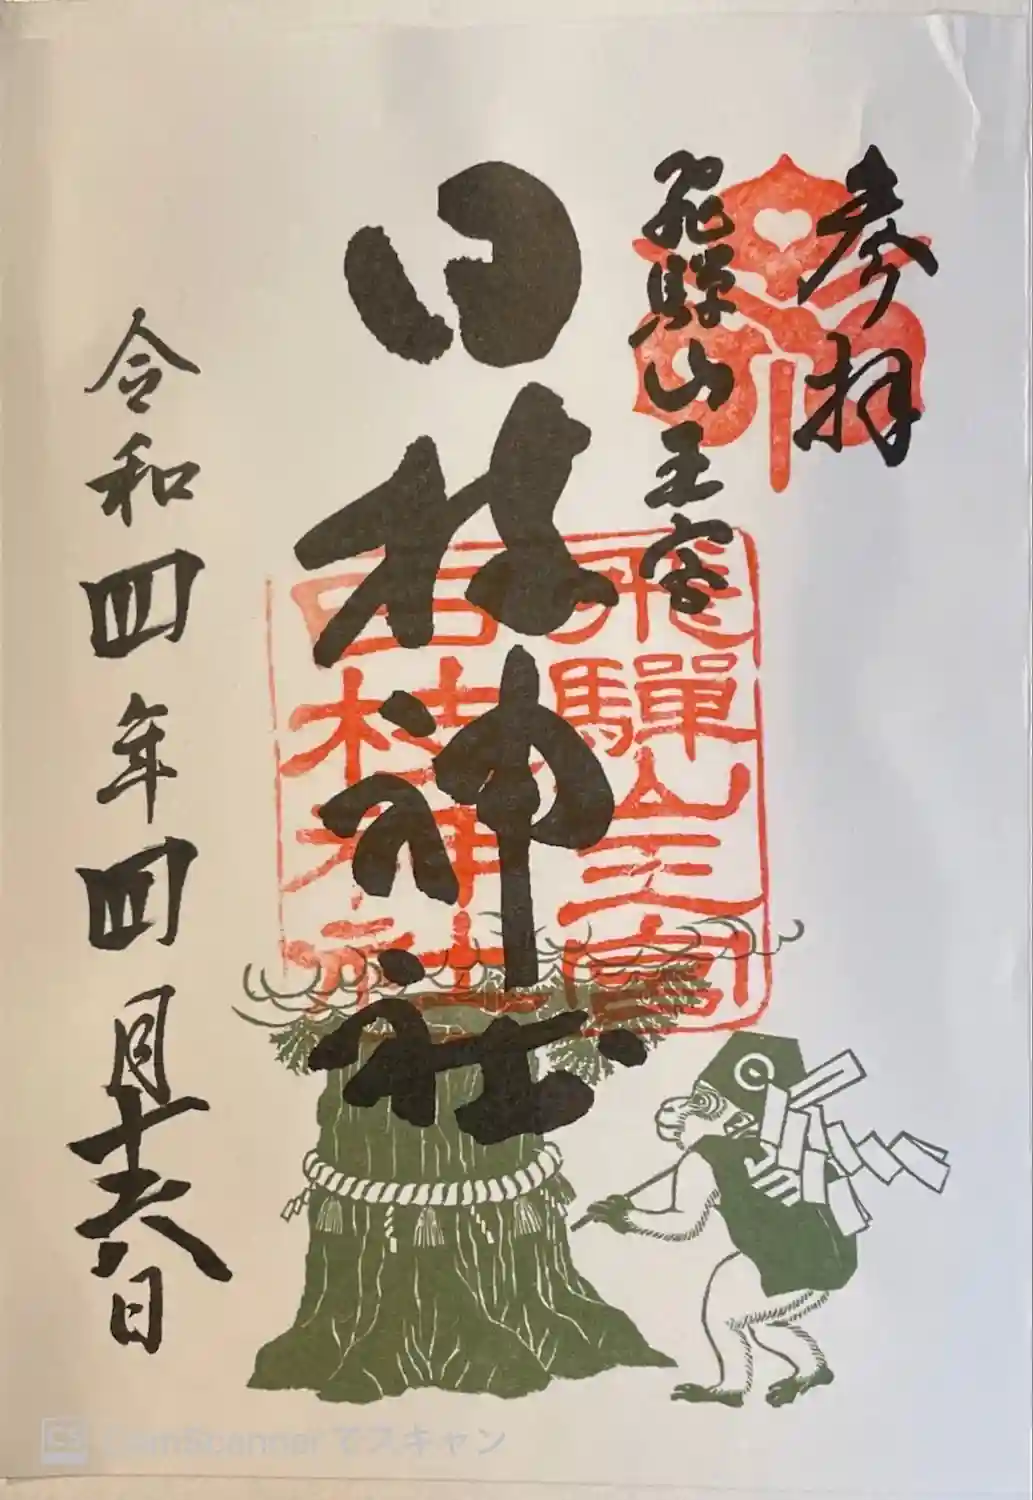 参拝
飛騨山王宮
日枝神社
飛驒山王宮
日枝神社
令和四年四月十六日
CS CamScanner でスキャン